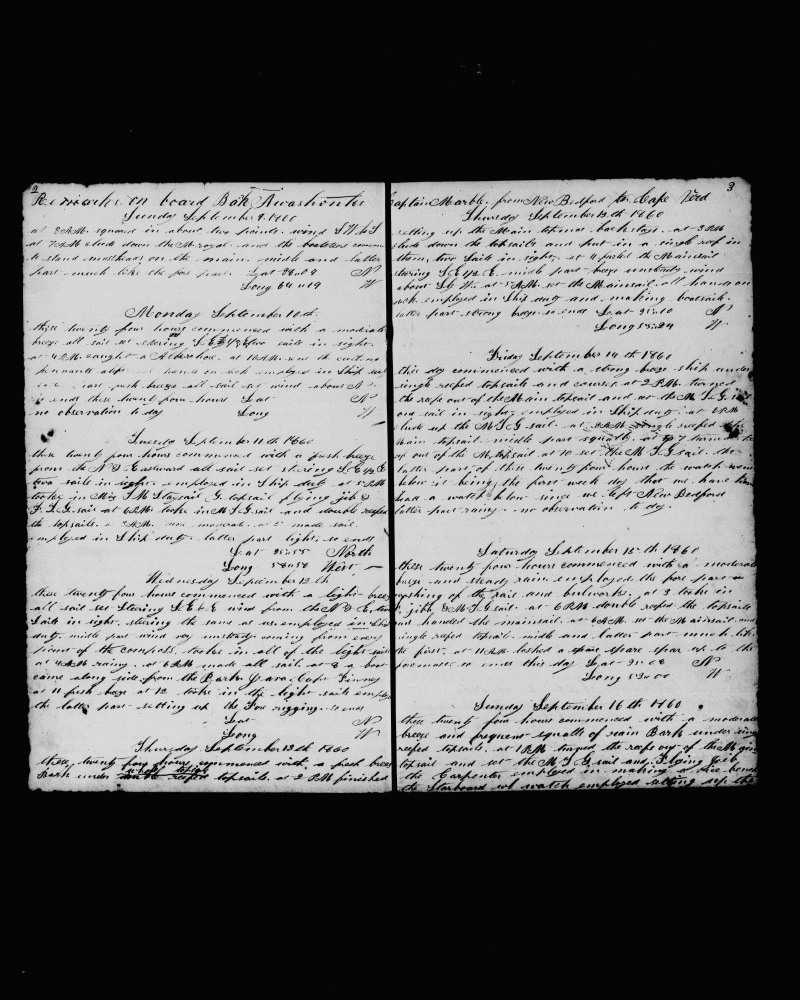 2
Remarks on board Bark Awashonks
Sunday September 9 1860
at 3 AM squared in about two points wind
at 7 AM clued down the M royal and the boatsteerers
to stand mastheads on the main middle and latter
part much like the fore part Lat 38:08 N
Long 64:19 W
Monday September 10th
these twenty four hours commenced with a moderate
breeze all sail set steering two sails in sight
at 4 PM caught a Albercore at 10 AM
pennants hands on deck employed in Ship
breeze all sail set wind about N
ends these twenty four hours Lat N
no observation to day Long W
Tuesday September 11th 1860
these twenty four hours commenced with a fresh breeze
from the N & Eastward all sail set steering S E ½ E
two sails in sight employed in Ship duty at 5 PM
took in Miz T M Staysail G topsail flying jib &
F T G sail at 6 PM took in M T G sail and double reefed
the topsails moderate at 5 made sail
employed in Ship duty latter part light so ends
Lat 35:55 North
Long 58:58 West
Wednesday September 12th
these twenty four hours commenced with a light breeze
all sail set Steering S E & E wind from the N & E two
Sails in sight stering the same as us employed in Ship
duty middle part wind very unsteady coming from every
point of the compass took in all of the light sails
at 4 AM rainy at 6 AM made all sail at 8 a boat
came along side from the Bark Capt
at 11 fresh breze at 12 took in the light sails employed
the latter part setting up the Fore rigging so ends
Lat N
Long W
Thursday September 13th 1860
these twenty four hours commenced with a fresh breeze
Bark under whole topsails at 2 PM finished
3
Captain Marble from New Bedford to Cape Verd
Thursday September 13th 1860
setting up the Main topmast backstays at 3 PM
clued down the topsails and put in a single reef in
them two Sails in sight at 4 furled the Mainsail
stering S E ½ E middle part breeze unsteady wind
about at 5 AM set the Mainsail all hands on
deck employed in Ship duty and making boatsails
latter part strong breeze so ends Lat 35:10 N
Long 55:24 W
Friday September 14th 1860
this day commenced with a strong breze ship under
single reefed topsails and courses at 2 PM turned
the reefs out of the Main topsail and set the M T G sail
one sail in sight employed in Ship duty at 6 PM
clued up the M T G sail at single reefed the
Main topsail middle part squally at 7 turned the
reef out of the M topsail at 10 set the M T G sail the
latter part of these twenty four hours the watch went
below it being the first week day that we have have
had a watch below since we left New Bedford
latter part rainy no observation to day
Saturday September 15th 1860
these twenty four hours commenced with a moderate
breeze and steady rain employed the fore part in
washing of the rail and bulwarks at 3 took in
F jib & M T G sail at 6 PM double reefed the topsails
and handed the mainsail at 6 AM set the Mainsail and
single reefed topsail middle and latter part much like
the first at 11 AM lashed a spare spare spar up to the
foremast so ends this day Lat 35:08 N
Long 53:00 W
Sunday September 16th 1860
these twenty four hours commenced with a moderate
breeze and frequent squalls of rain Bark under single
reefed topsails at 1 PM turned the reefs out of the Main
topsail and set the M T G sail and Flying Jib
the Carpenter employed in making a vice bench
the Starboard watch employed setting up the